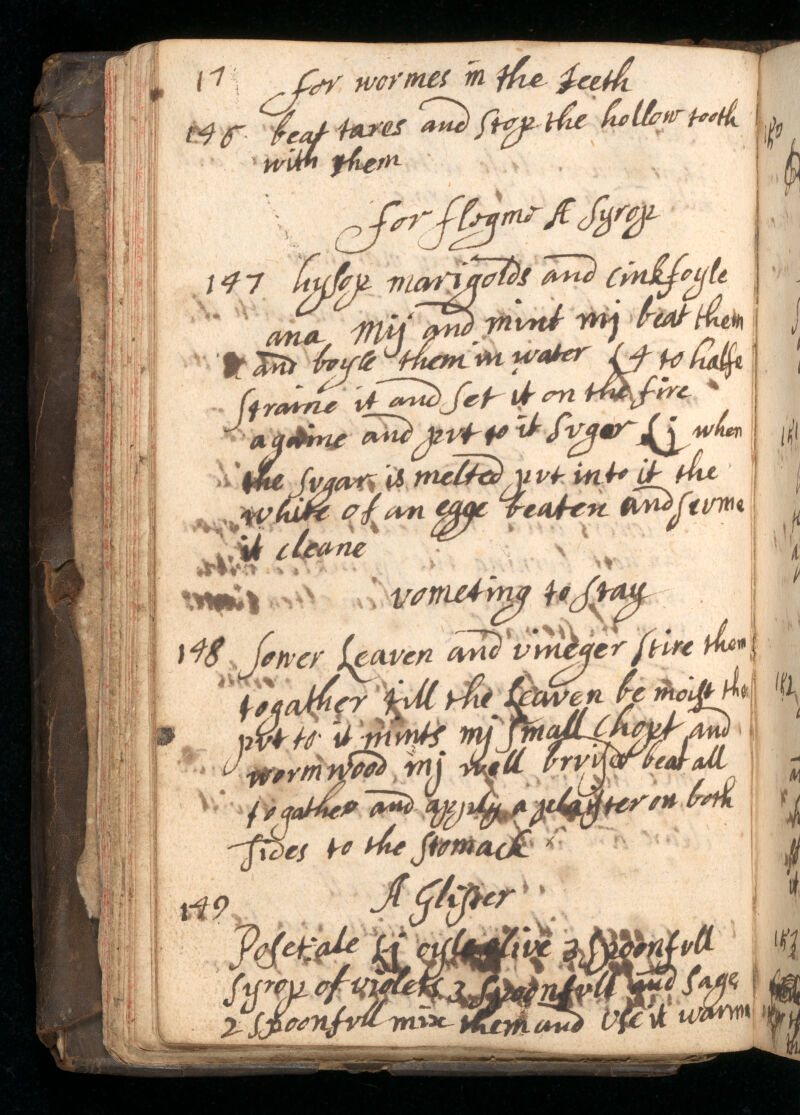 17 for wormes in the teeth
146 beat tares and stop the hollow tooth
with them
for flegme A Syrop
147 hysop marigolds and cinkfoyle
ana Mij and mint mj beat them
and boyle them in water 4 to halfe
straine it and set it on the fire
againe and pvt to it Svger j when
the svgar is melted pvt into it the
white of an egge beaten and scvme
it cleane
vometing to stay
148 Sower Leaven and vineger stire them
togather till the Leaven be moist the
pvt to it mints mj small Chopt and
wormwood mj well brvised beat all
togather and apply a plaister on both
sides to the stomack
A Glister
149
Poset ale j oyle olive 3 spoonfvll
Syrop of violets 3 spoonfvll and sage
2 spoonfvll mix them and vse it warm
150
151
152
153